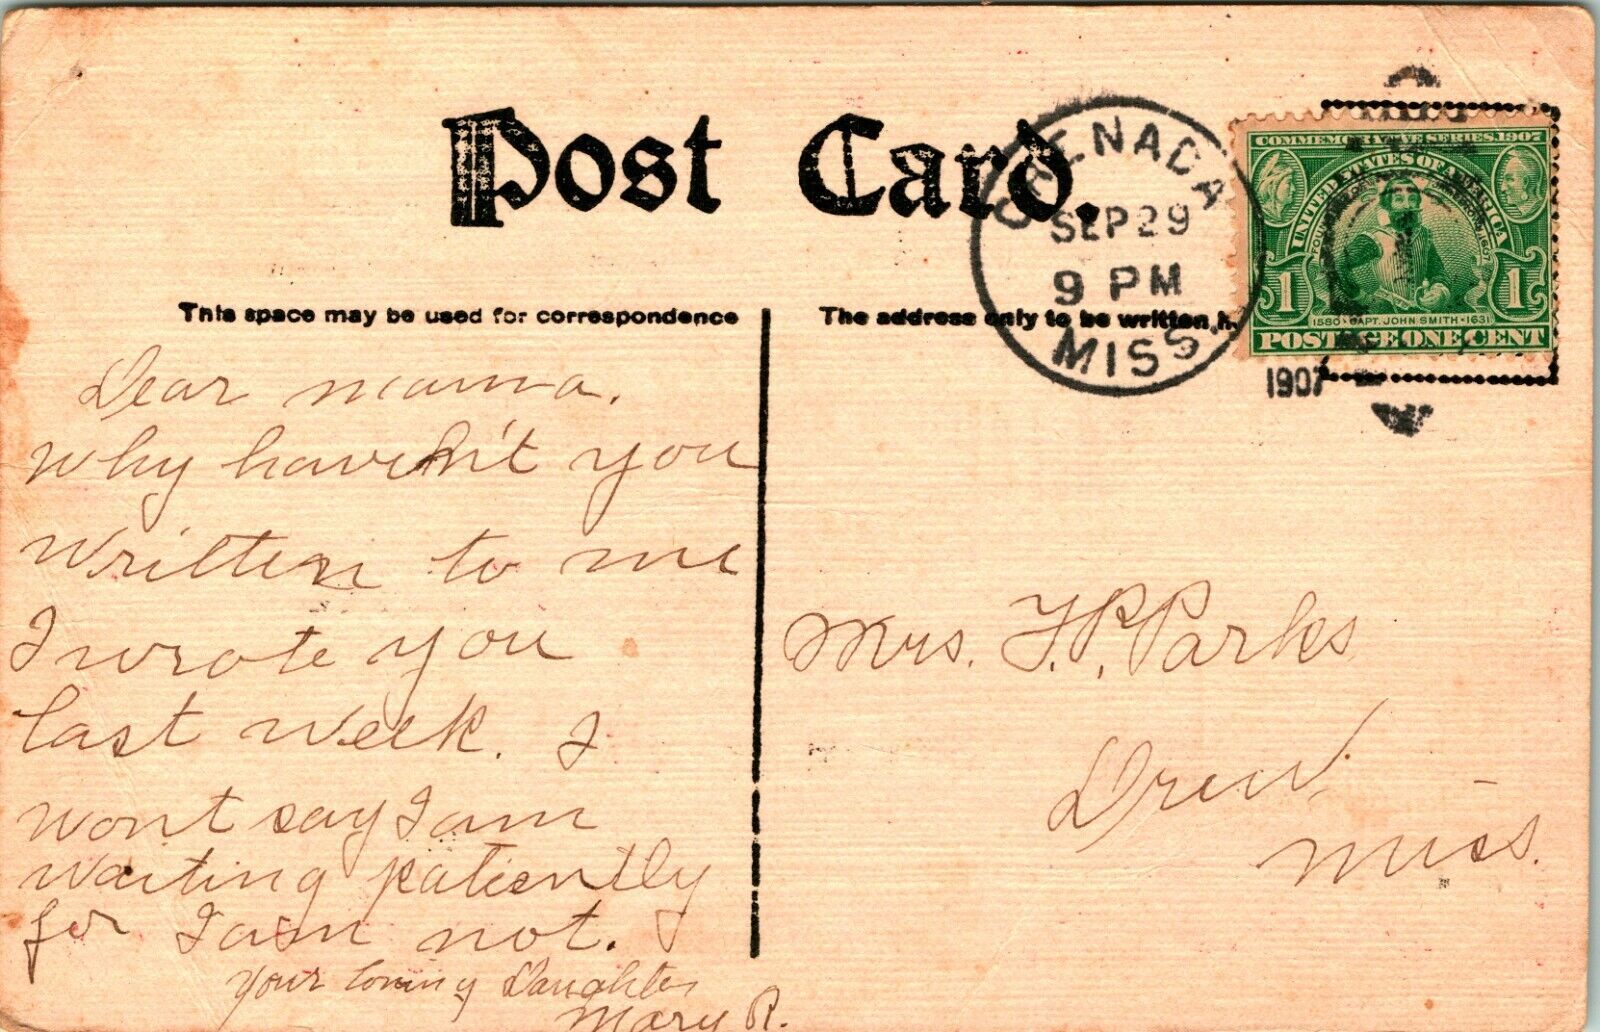 Post Card.
GRENADA
SEP 29
9 PM
MISS.
1907
COMMEMORATIVE SERIES 1907
UNITED STATES OF AMERICA
1 1
1580 · CAPT. JOHN SMITH · 1631
POSTAGE ONE CENT
This space may be used for correspondence
The address only to be written h
Dear mama.
why haven't you
written to me
I wrote you
last week. I
wont say I am
waiting patiently
for I am not.
your loving Daughter
Mary R.
Mrs. F.P. Parks
Drew,
Miss.